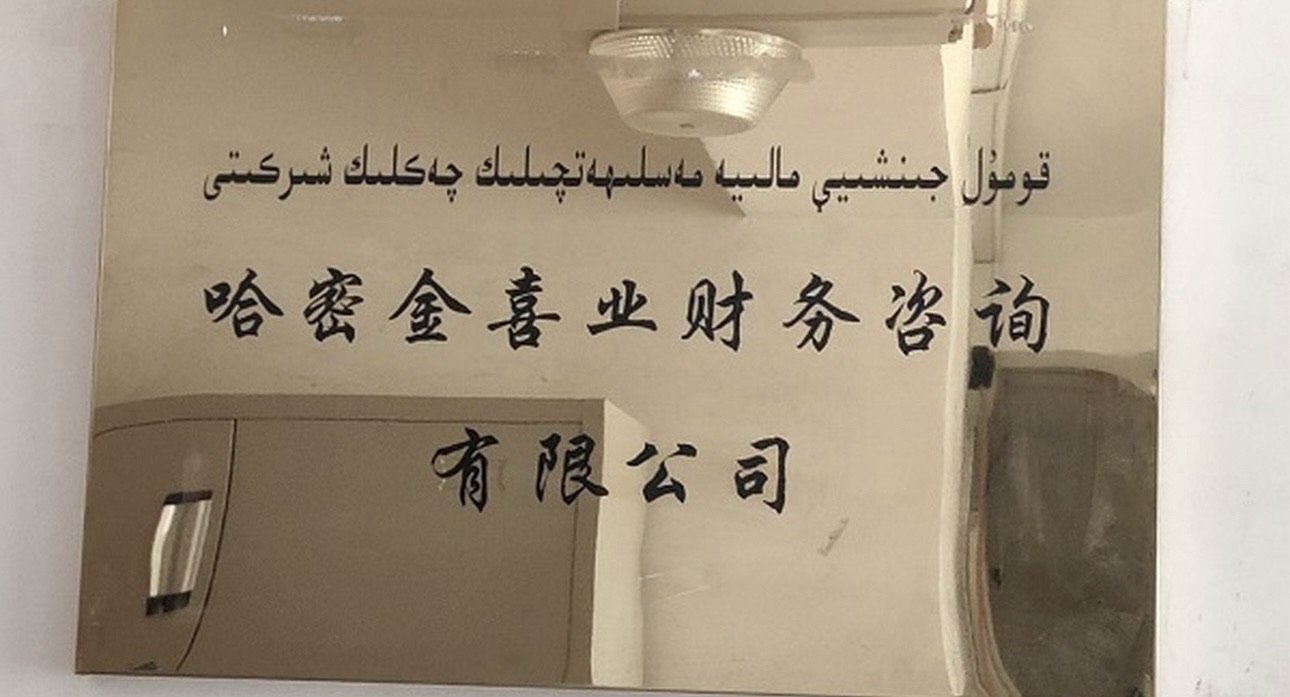 قومۇل جىنشىيې مالىيە مەسلىھەتچىلىك چەكلىك شىركىتى
哈密金喜业财务咨询
有限公司